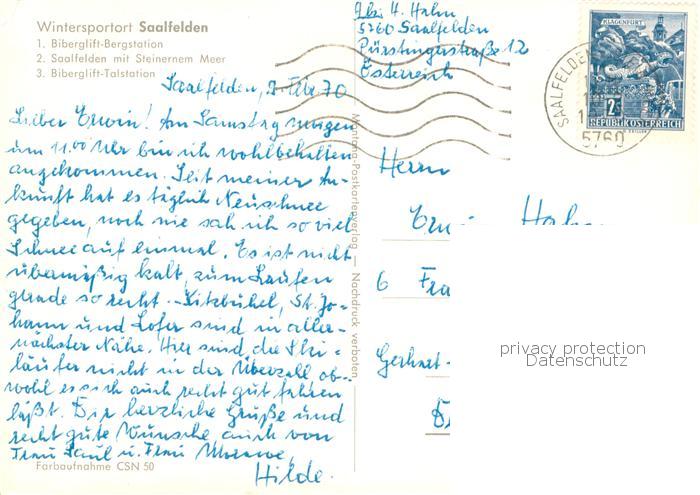 Wintersportort Saalfelden
1. Biberglift-Bergstation
2. Saalfelden mit Steinernem Meer
3. Biberglift-Talstation
Saalfelden, 70
Lieber Erwin! Am Samstag morgen
um 11.00 Uhr bin ich wohlbehalten
angekommen. Seit meiner An-
kunft hat es täglich Neuschnee
gegeben, noch nie sah ich so viel
Schnee auf einmal. Es ist nicht
übermäßig kalt, zum Laufen
gerade so recht. Kitzbühel, St. Jo-
hann und Lofer sind in aller-
nächster Nähe. Hier sind die Ski-
läufer nicht in der Überzahl ob-
wohl es sich auch recht gut fahren
läßt. Dir herzliche Grüße und
recht gute Wünsche auch von
Frau Paul u. Frau
Hilde.
Farbaufnahme CSN 50
Montana-Postkartenverlag — Nachdruck verboten
Abs. H. Hahn
5760 Saalfelden
Pürstingerstraße 12
Österreich
KLAGENFURT
2 S
REPUBLIK ÖSTERREICH
SAALFELDEN
5760
Herrn
Hahn
6 Fra
Gerhart-
privacy protection
Datenschutz